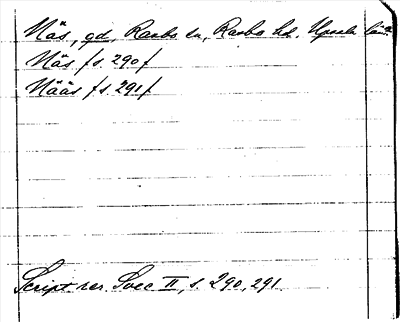 Näs, gd, Rasbo sn, Rasbo hd. Upsala län.
Näs /s. 290/
Nääs /s. 291/
Script. rer. Svec II, s. 290, 291.